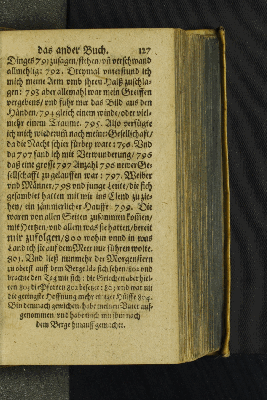 das ander Buch. 127
Dinges 791 zusagen/ stehen/ vñ verschwand
allmehlig: 792. Dreymal unterstund ich
mich meine Arm vmb ihren Halß zuschla-
gen: 793 aber allemahl war mein Greiffen
vergebens/ vnd fuhr mir das Bild aus den
Händen/ 794 gleich einem winde/ oder viel-
mehr einem Traume. 795. Also verfügte
ich mich wiederum nach meiner Gesellschaft/
da die Nacht schier fürbey war: 796. Vnd
da 797 fand ich mit Verwunderung/ 796
daß eine grosse 797 Anzahl 796 newer Ge-
sellschafft zugelauffen war: 797. Weiber
vnd Männer/ 798 vnd junge Leute/ die sich
gesamblet hatten mit mir ins Elend zu zie-
hen/ ein jämmerlicher Hauffe. 799. Die
waren von allen Seiten zusammen kommen/
mit Hertzen/ vnd allem was sie hatten/ bereit
mir zufolgen/ 800 wohin vnnd in was
Land ich sie auf dem Meer nur führen wolte.
801. Vnd ließ nunmehr der Morgenstern
zu oberst auff dem Berge Ida sich sehen/ 802 vnd
brachte den Tag mit sich: die Griechen aber hiel-
ten die Pforten besetzt: vnd war nu
die geringste Hoffnung mehr einiger Hülffe 804.
Bin demnach gewichen/ habe meinen Vater auff-
genommen/ vnd habe mich mit ihm nach
dem Berge hinauff gemacht.